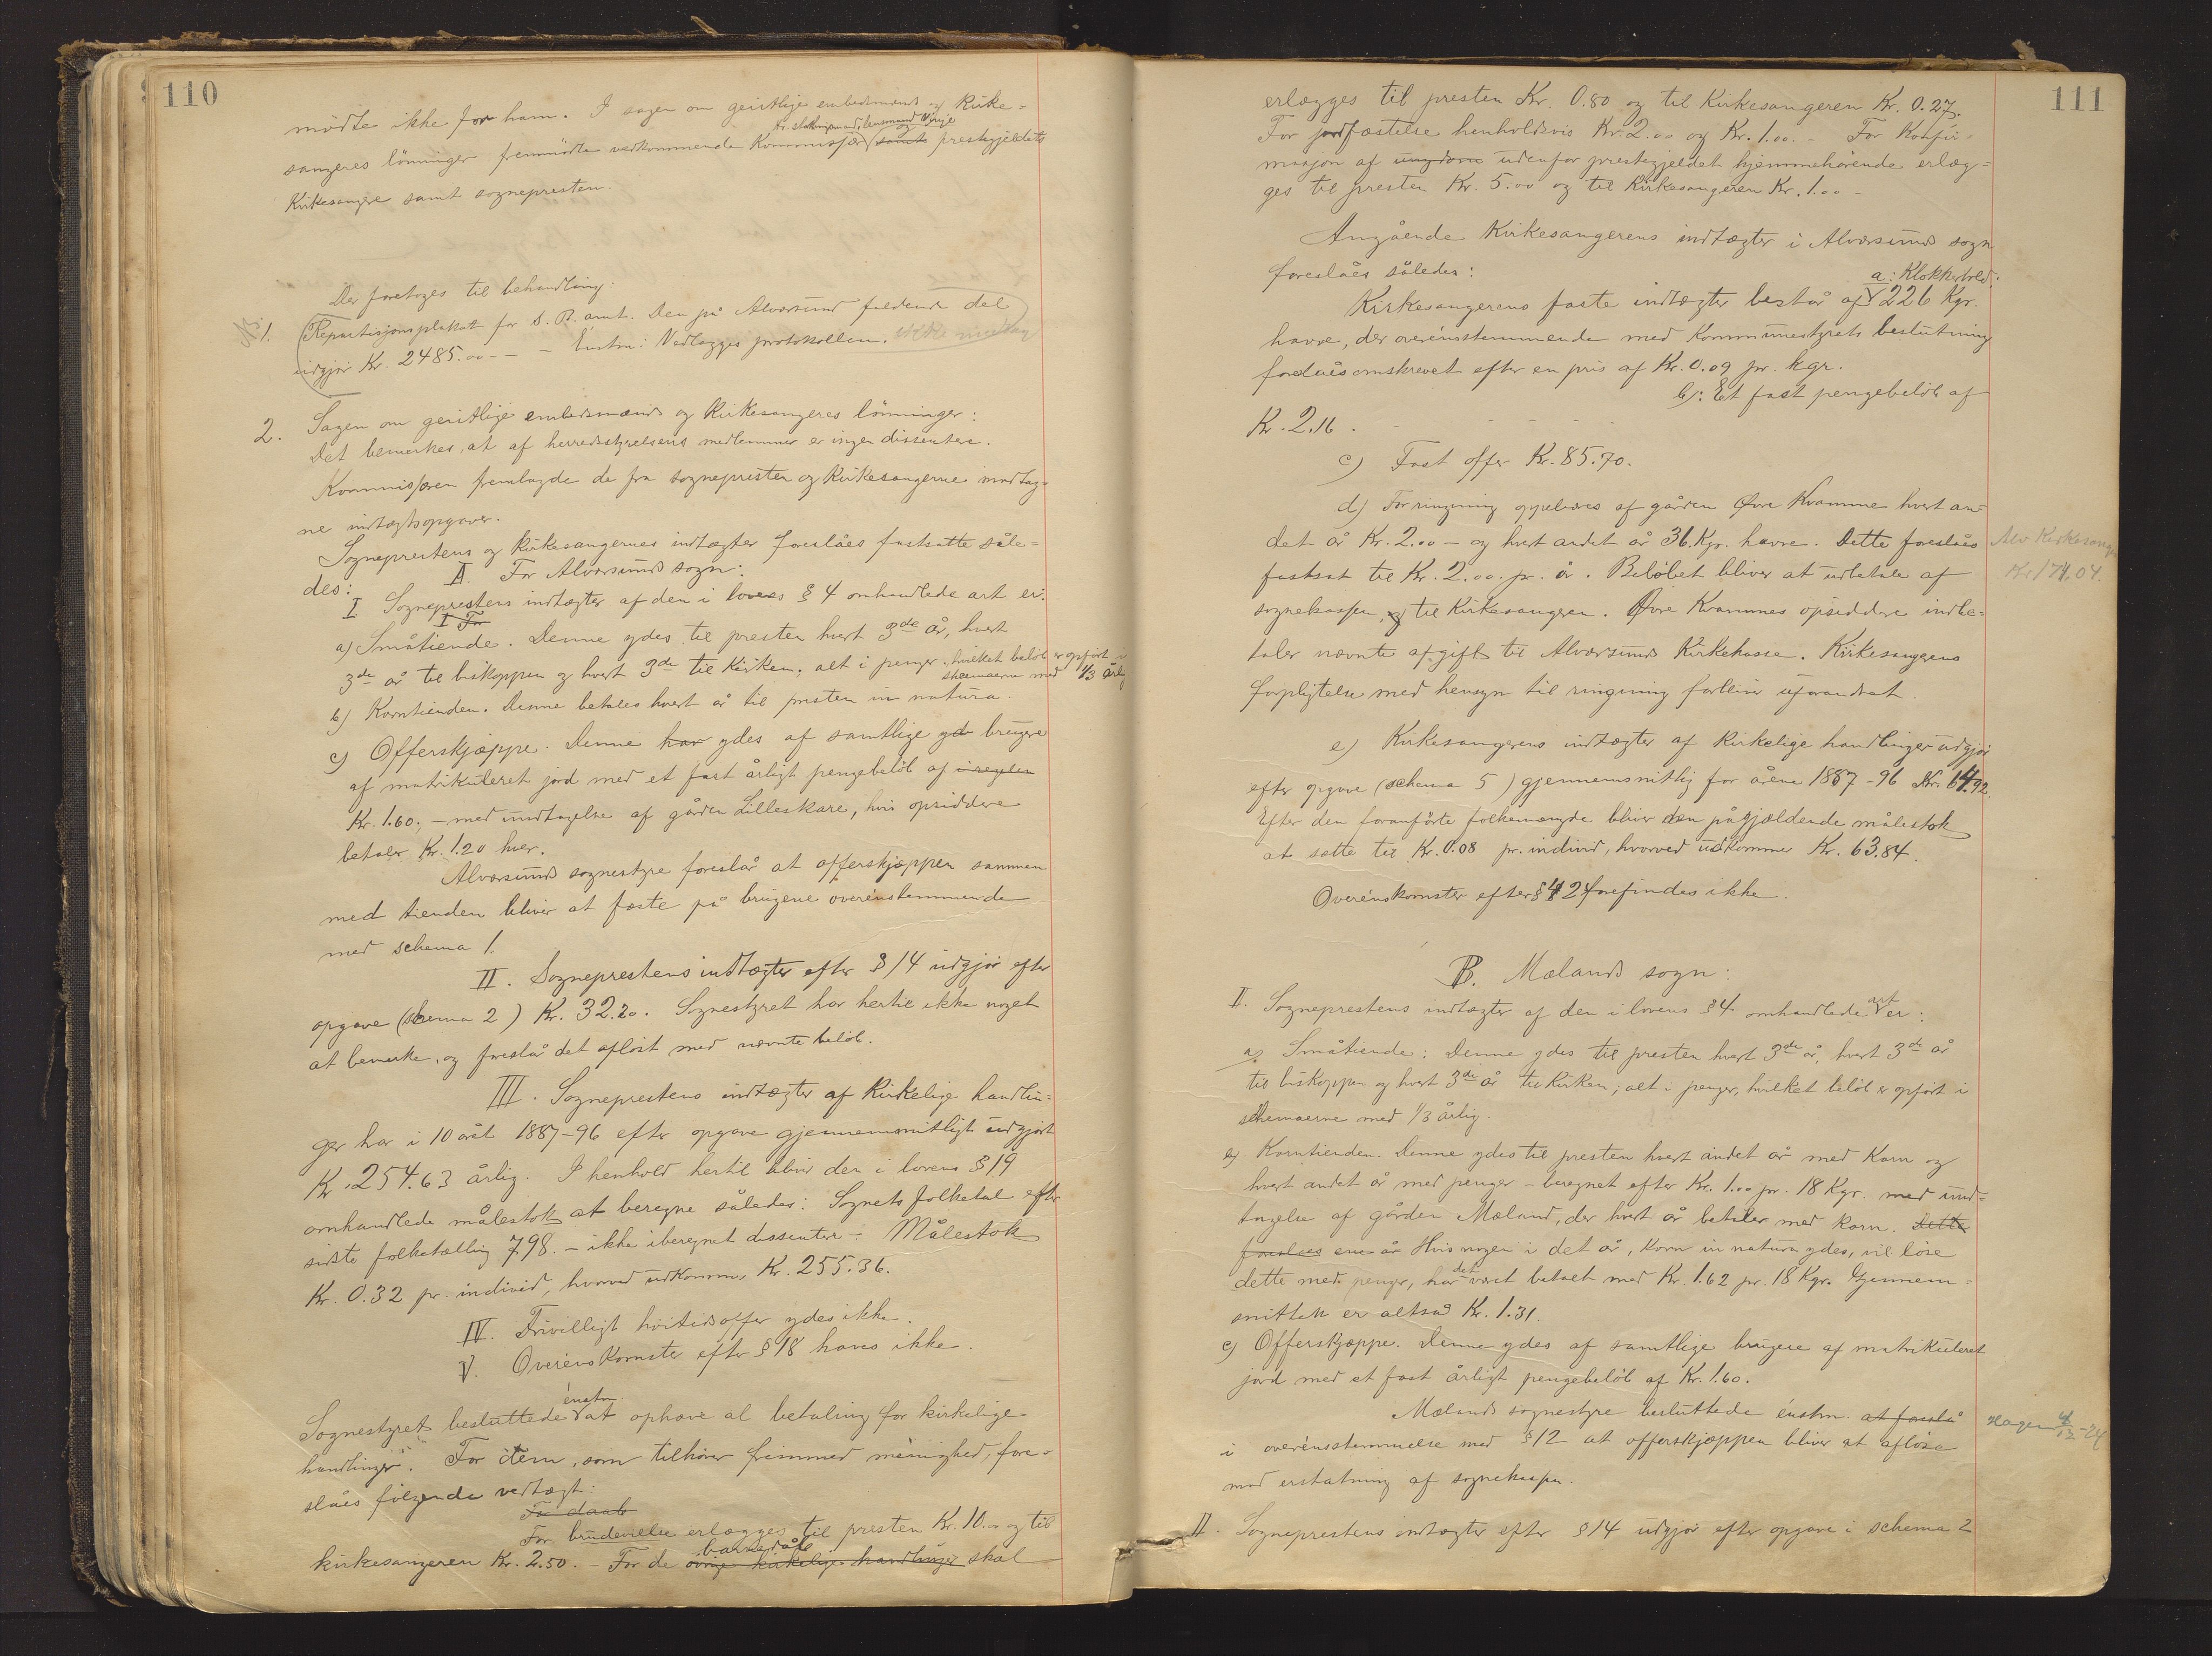 110
mödte ikke for ham. I sagen om geistlige embedsmænds og Kirke=
sangeres lönninger fremmödte vedkommende Kommissær samt prestegjeldets
Kirkesangere samt sognepresten.
Der foretoges til behandling:
1. Repartisjonsplakat for S. B. amt. Den på Alværsund faldende del
udgjör Kr. 2485.00 - - Enstm: Vedlægges protokollen.
2. Sagen om geistlige embedsmænds og Kirkesangeres lönninger:
Det bemerkes, at af herredsstyrelsens medlemmer er ingen dissentere.
Kommissæren fremlagde de fra sognepresten og Kirkesangerne modtag=
ne indtægtsopgaver.
Sogneprestens og Kirkesangernes indtægter foreslåes fastsatte såle=
des: A. For Alværsunds sogn:
I Sogneprestens indtægter af den i lovens § 4 omhandlede art er:
I For
a) Småtiende. Denne ydes til presten hvert 3de år, hvert
3de år til biskoppen og hvert 3de til Kirken; alt i penger, hvilket belöb er opfört i
skemaerne med 1/3 årlig
b) Korntienden. Denne betales hvert år til presten in natura.
c) Offerskjæppe. Denne har ydes af samtlige yd brugere
af matrikuleret jord med et fast årligt pengebelöb af i regelen
Kr. 1.60; - med undtagelse af gården Lilleskare, hvis opsiddere
betaler Kr. 1.20 hver.
Alværsunds sognestyre foreslår at offerskjæppen sammen
med tienden bliver at fæste på brugene overénstemmende
med schema 1.
II. Sogneprestens indtægter efter § 14 udgjör efter
opgave (schema 2) Kr. 32.20. Sognestyret har hertil ikke noget
at bemerke, og foreslår det aflöst med nævnte belöb.
III. Sogneprestens indtægter af Kirkelige handlin=
ger har i 10 året 1887-96 efter opgave gjennemsnitligt udgjort
Kr. 254.63 årlig. I henhold hertil bliver den i lovens § 19
omhandlede målestok at beregne således: Sognets folketal efter
sidste folketælling 798. - ikke iberegnet dissentere - Målestok
Kr. 0.32 pr. individ, hvorved udkommer Kr. 255.36.
IV. Frivilligt höitidsoffer ydes ikke.
V. Overénskomster efter § 18 haves ikke.
enstm.
Sognestyret besluttede at ophæve al betaling for kirkelige
handlinger. For dem, som tilhörer fremmed menighed, fore=
slåes fölgende vedtægt:
For daab
For brudevielse erlægges til presten Kr. 10.00 og til
barnedåb
kirkesangeren Kr. 2.50. - For de övrige kirkelige handlinger skal
111
erlægges til presten Kr. 0.80 og til Kirkesangeren Kr. 0.27.
For jordfæstelse henholdsvis Kr. 2.00 og Kr. 1.00. - For Konfir=
masjon af ungdom udenfor prestegjeldet hjemmehörende erlæg=
ges til presten Kr. 5.00 og til Kirkesangeren Kr. 1.00 -
Angående Kirkesangerens indtægter i Alværsunds sogn
foreslåes således:
a: Klokkertold:
Kirkesangerens faste indtægter består af 226 Kgr.
havre, der overénsstemmende med Kommunestyrets beslutning
foreslåes omskrevet efter en pris af Kr. 0.09 pr. kgr.
b): Et fast pengebelöb af
Kr. 2.16.
c) Fast offer Kr. 85.70.
d) For ringning oppebæres af gården Øvre Kvamme hvert an=
det år Kr. 2.00 - og hvert andet år 36 Kgr. havre. Dette foreslåes
fastsat til Kr. 2.00 pr. år. Belöbet bliver at udbetale af
sognekassen, til Kirkesangeren. Øvre Kvammes opsiddere indbe=
taler nævnte afgift til Alværsunds Kirkekasse. Kirkesangerens
forpligtelse med hensyn til ringning forbliver uforandret.
Alv Kirkesanger
Kr 174.04.
e) Kirkesangerens indtægter af Kirkelige handlinger udgjör
efter opgave (schema 5) gjennemsnitlig for årene 1887-96 Kr. 64.92.
Efter den foranförte folkemængde bliver den pågjældende målestok
at sætte til Kr. 0.08 pr. individ, hvorved udkommer Kr. 63.84.
Overénskomster efter § 24 forefindes ikke.
B. Mælands sogn:
I. Sogneprestens indtægter af den i lovens § 4 omhandlede art er:
a) Småtiende: Denne ydes til presten hvert 3de år, hvert 3de år
til biskoppen og hvert 3de år til Kirken; alt i penger, hvilket belöb er opfört i
schemaerne med 1/3 årlig.
b) Korntienden. Denne ydes til presten hvert andet år med Korn og
hvert andet år med penger - beregnet efter Kr. 1.00 pr. 18 Kgr. med und=
tagelse af gården Mæland, der hvert år betaler med korn. Dette
foreslåes Hvis nogen i det år, Korn in natura ydes, vil löse
dette med penger, har det været betalt med Kr. 1.62 pr. 18 Kgr. Gjennem=
snittet er altså Kr. 1.31.
c) Offerskjæppe. Denne ydes af samtlige brugere af matrikuleret
jord med et fast årligt pengebelöb af Kr. 1.60.
Mælands sognestyre besluttede énstm. at foreslå
i overénsstemmelse med § 12 at offerskjæppen bliver at aflöse
mod erstatning af sognekassen.
II. Sogneprestens indtægter efter § 14 udgjör efter opgave i schema 2